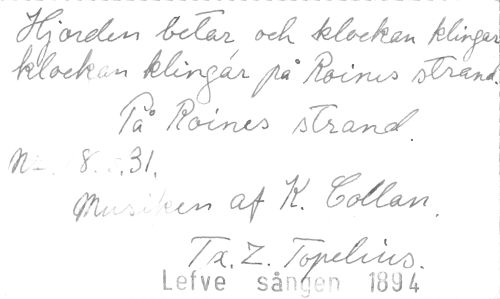 Hjorden betar och klockan klingar
klockan klingar på Roines strand.
På Roines strand.
8 . 31.
Musiken af K. Collan.
Tx. Z. Topelius.
Lefve sången 1894